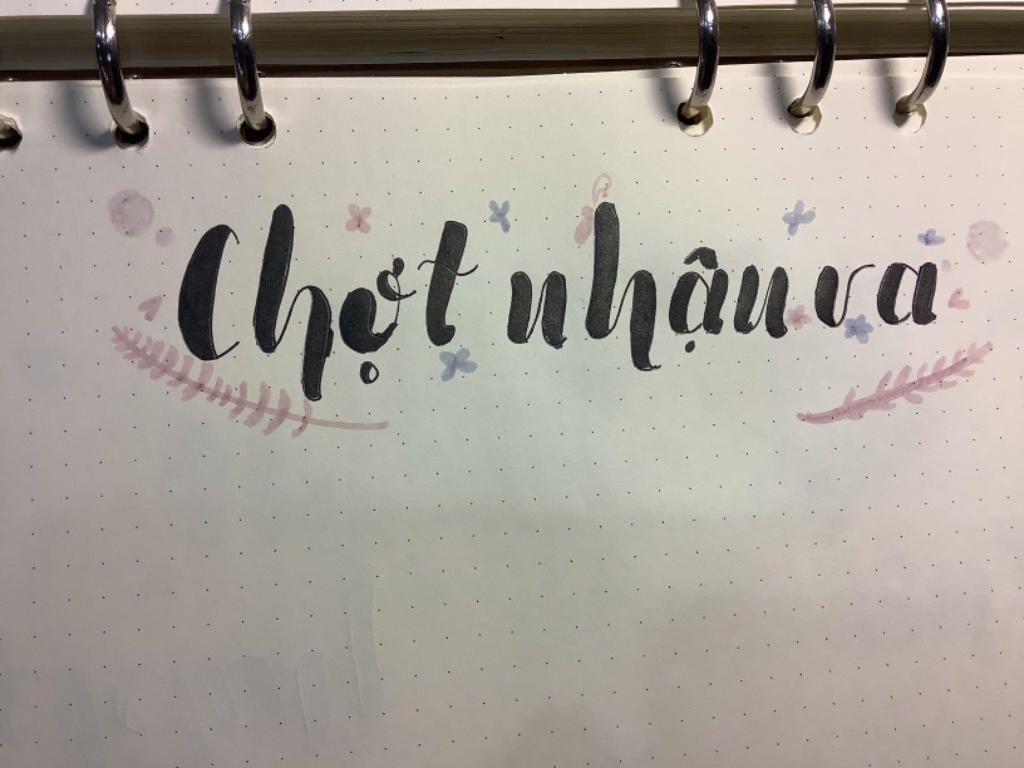 Chợt nhận ra